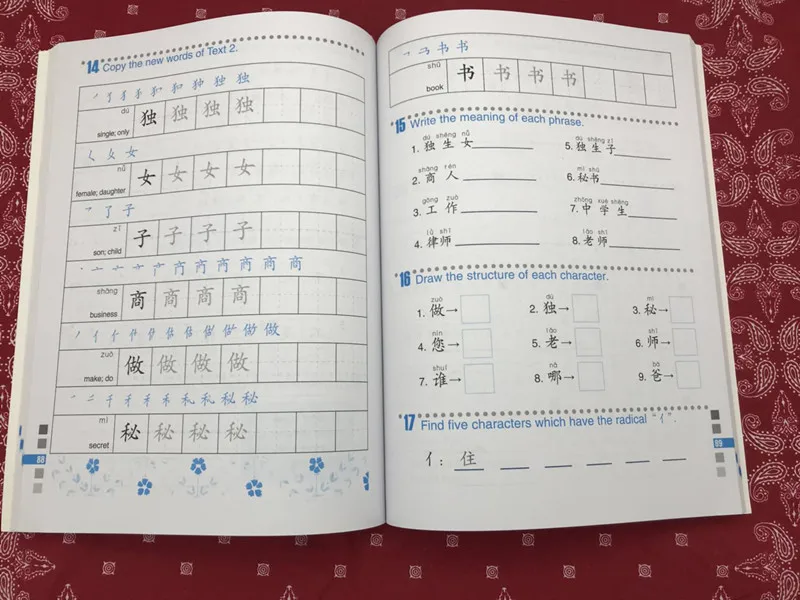 14 Copy the new words of Text 2.
独 独
dú
独 独 独 独
single; only
女 女
nǚ
女 女 女 女
female; daughter
了 子
zǐ
子 子 子 子
son; child
商 商
shāng
商 商 商 商
business
做 做
zuò
做 做 做 做
make; do
千 禾 禾 秘
mì
秘 秘 秘 秘
secret
88
书 书
shū
书 书 书 书
book
15 Write the meaning of each phrase.
dú shēng nǚ
1. 独 生 女
dú shēng zǐ
5. 独 生 子
shāng rén
2. 商 人
mì shū
6. 秘 书
gōng zuò
3. 工 作
zhōng xué shēng
7. 中 学 生
lǜ shī
4. 律 师
lǎo shī
8. 老 师
16 Draw the structure of each character.
zuò dú mì
1. 做→ 2. 独→ 3. 秘→
nín lǎo shī
4. 您→ 5. 老→ 6. 师→
shuí nǎ bà
7. 谁→ 8. 哪→ 9. 爸→
17 Find five characters which have the radical “亻”.
亻: 住
89